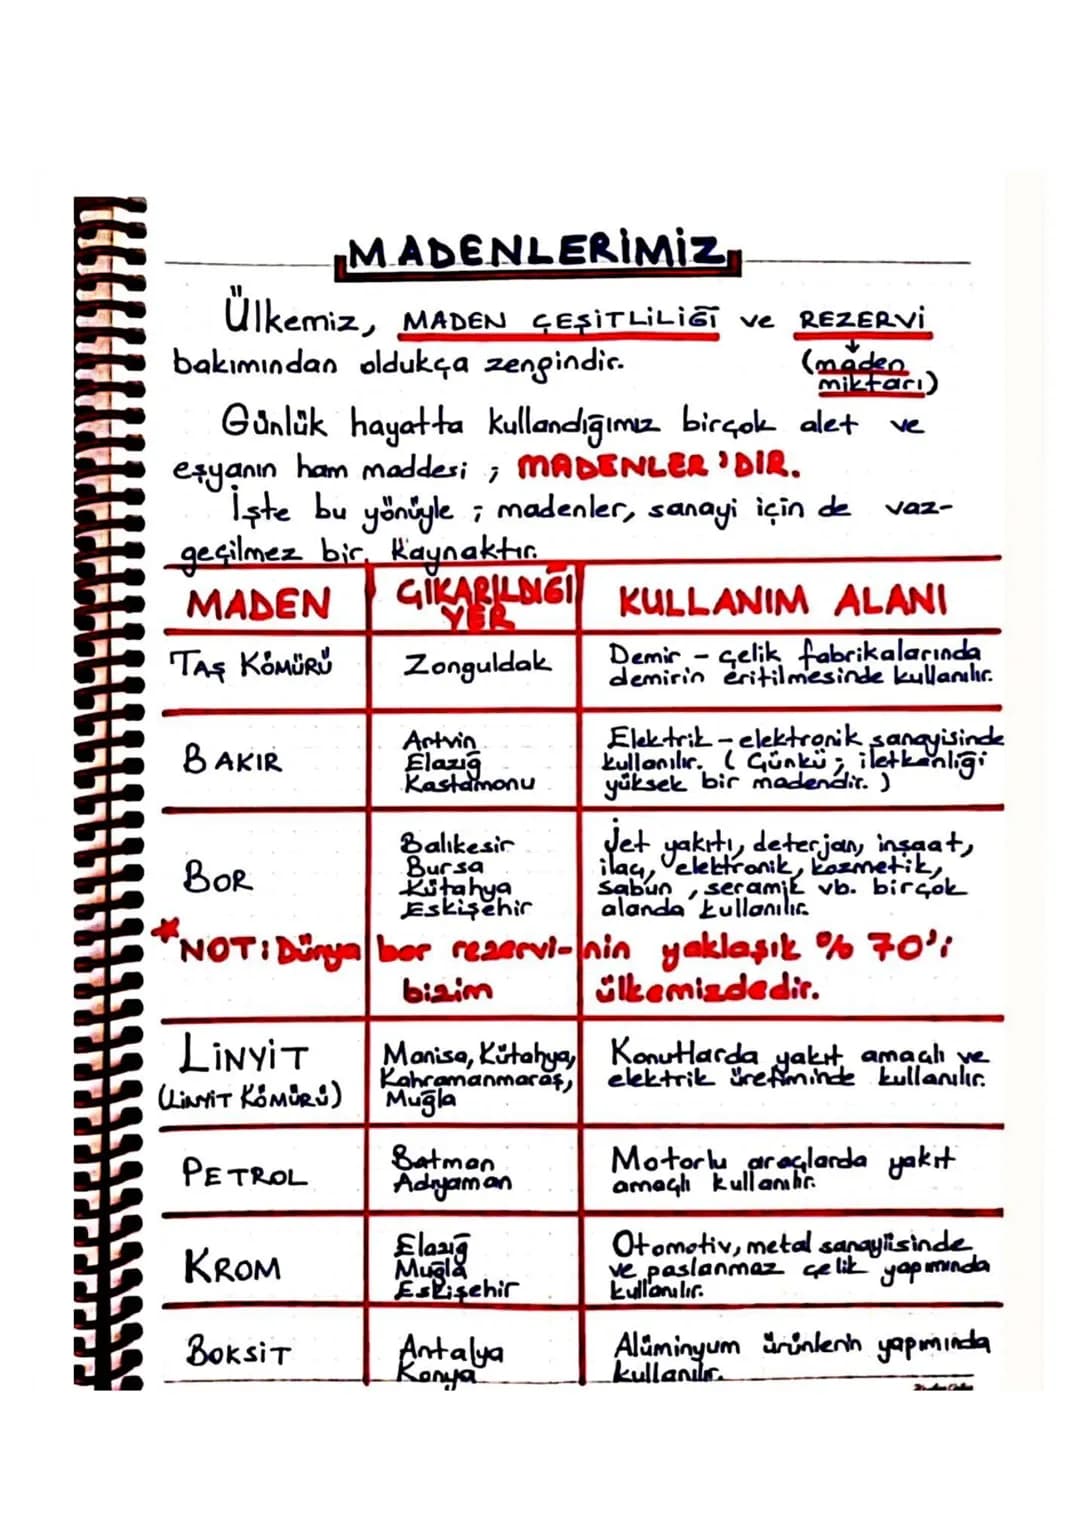 MADENLERİMİZ
Ülkemiz, MADEN ÇEŞİTLİLİĞİ ve REZERVİ
bakımından oldukça zengindir. (maden
miktarı)
Günlük hayatta kullandığımız birçok alet ve
eşyanın ham maddesi ; MADENLER'DİR.
İşte bu yönüyle ; madenler, sanayi için de vaz-
geçilmez bir kaynaktır.
MADEN
ÇIKARILDIĞI
YER
KULLANIM ALANI
TAŞ KÖMÜRÜ
Zonguldak
Demir - çelik fabrikalarında
demirin eritilmesinde kullanılır.
BAKIR
Artvin
Elazığ
Kastamonu
Elektrik - elektronik sanayisinde
kullanılır. ( Çünkü ; iletkenliği
yüksek bir madendir. )
BOR
Balıkesir
Bursa
Kütahya
Eskişehir
Jet yakıtı, deterjan, inşaat,
ilaç, elektronik, kozmetik,
sabun, seramik vb. birçok
alanda kullanılır.
*NOT: Dünya bor rezervi-nin yaklaşık % 70'i
bizim ülkemizdedir.
LİNYİT
(LİNYİT KÖMÜRÜ)
Manisa, Kütahya,
Kahramanmaraş,
Muğla
Konutlarda yakıt amaçlı ve
elektrik üretiminde kullanılır.
PETROL
Batman
Adıyaman
Motorlu araçlarda yakıt
amaçlı kullanılır.
KROM
Elazığ
Muğla
Eskişehir
Otomotiv, metal sanayiisinde
ve paslanmaz çelik yapımında
kullanılır.
BOKSİT
Antalya
Konya
Alüminyum ürünlerin yapımında
kullanılır.